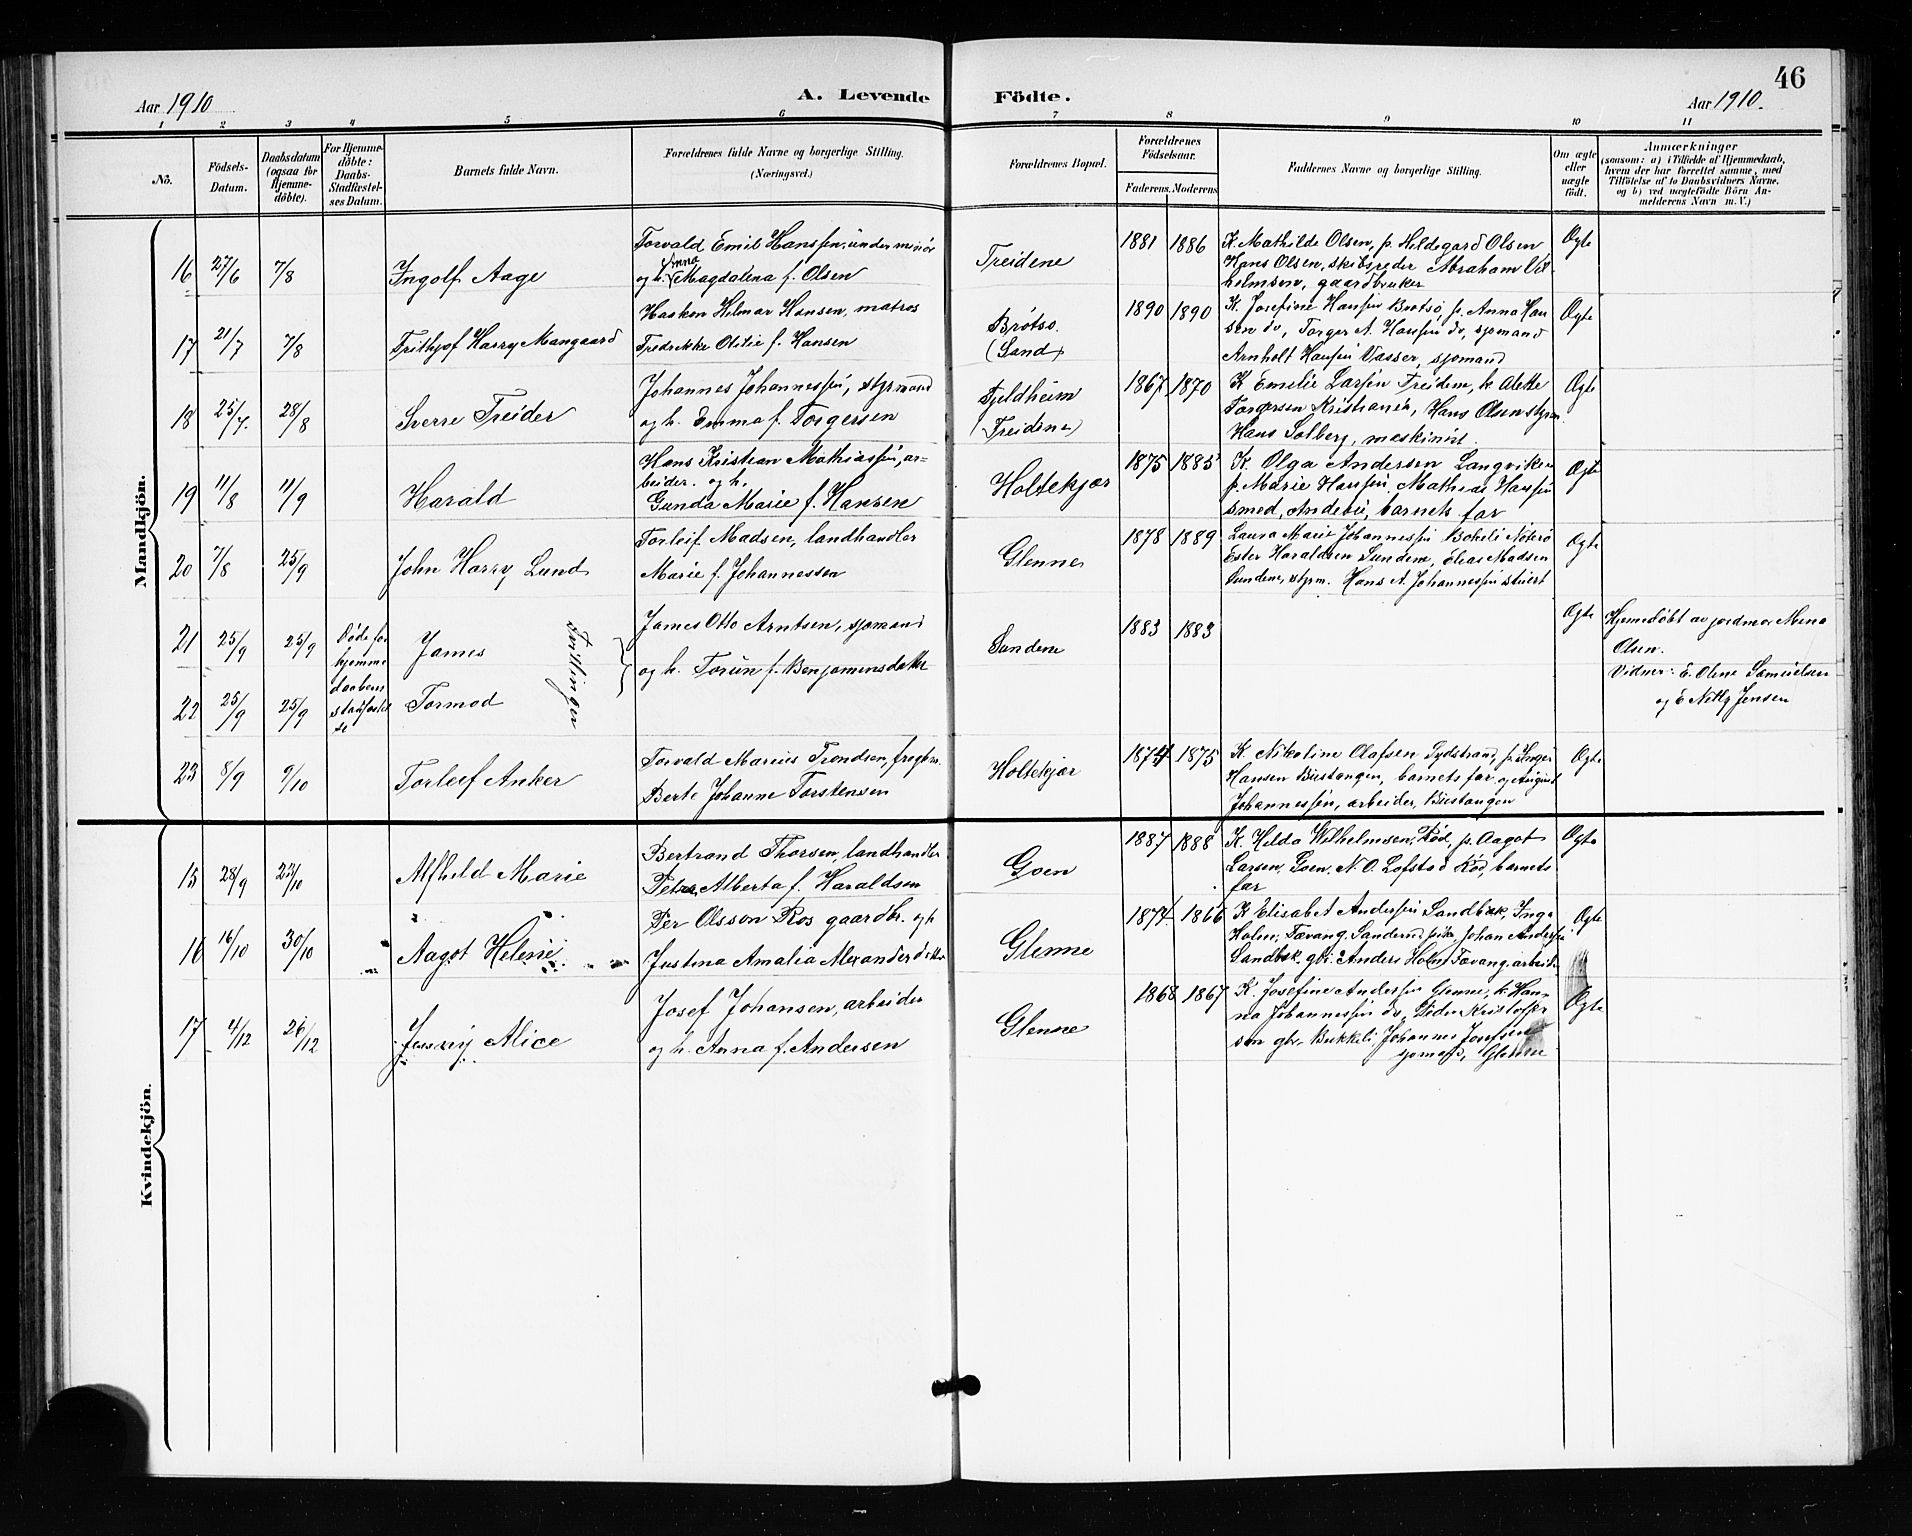 46
Aar 1910
A. Levende Födte.
Aar 1910.
1 2 3 4 5 6 7 8 9 10 11
No.
Födsels-
Datum.
Daabsdatum
(ogsaa for
Hjemme-
döbte).
For Hjemme-
döbte:
Daabs-
Stadfæstel-
ses Datum.
Barnets fulde Navn.
Forældrenes fulde Navne og borgerlige Stilling.
(Næringsvei.)
Forældrenes Bopæl.
Forældrenes
Födselsaar.
Faderens. Moderens.
Faddernes Navne og borgerlige Stilling.
Om ægte
eller
uægte
födt.
Anmærkninger
(saasom: a) i Tilfælde af Hjemmedaab,
hvem der har forrettet samme, med
Tilföielse af to Daabsvidners Navne,
og b) ved uægtefödte Börn An-
melderens Navn m. V.)
Mandkjön.
16 27/6 7/8 Ingolf Aage
Torvald Emil Hanssen, underminör
og h. Anna Magdalena f. Olsen
Treidene
1881 1886
K. Mathilde Olsen, p. Hildegard Olsen
Hans Olsen, skibsreder Abraham Vil
helmsen, gaardbruker
Ægte
17 21/7 7/8 Frithjof Harry Mangaard
Haakon Hilmar Hansen, matros
Fredrikke Otilie f. Hansen
Brøtsø.
(Sand)
1890 1890
K. Josefine Hansen Brøtsø, p. Anna Han
sen do, Torger A. Hansen do, sjømand
Arnholt Hansen Vasser, sjømand
Ægte
18 25/7. 28/8 Sverre Treider
Johannes Johannessen, styrmand
og h. Emma f. Torgersen
Fjeldheim
(Treidene)
1867 1870
K Emelie Larsen Treidene, k. Alette
Torgersen Kristiania, Hans Olsen styrm
Hans Solberg, maskinist.
Ægte
19 11/8 11/9 Harald
Hans Kristian Mathiassen, ar-
beider. og h.
Gunda Marie f. Hansen
Holtekjær
1875 1885
K. Olga Andersen Langviken
p. Marie Hansen, Mathias Hansen
smed, Andebu, barnets far
Ægte
20 7/8 25/9 John Harry Lund
Torleif Madsen, landhandler
Marie f. Johannessen
Glenne
1878 1889
Laura Marie Johannessen Bakeli Nøterø
Ester Haraldsen Sundene, Elias Madsen
Sundene, styrm. Hans A. Johannessen stuert
Ægte
21 25/9 25/9 Døde før
hjemme
daabens
stadfæstel
se
James
Tvillinger
James Otto Arntsen, sjømand
og h. Torun f. Benjaminsdatter
Sundene
1883 1883
Ægte
Hjemedøbt av jordmor Mina
Olsen.
Vidner: E. Oline Samuelsen
og E Nelly Jensen
22 25/9 25/9 Tormod
23 8/9 9/10 Torleif Anker
Torvald Marius Trondsen, fragtm.
Berte Johanne Torstensen
Holtekjær
1874 1875
K Nikoline Olafsen Sydstrand, p. Inger
Hansen Buestangen, barnets far og August
Johannessen, arbeider, Buestangen
Ægte
Kvindekjön.
15 28/9 23/10 Alfhild Marie
Bertrand Thorsen, landhandler
Petra Alberta f. Haraldsen
Goen
1887 1888
K. Hilda Wilhelmsen, Rød, p. Aagot
Larsen, Goen, N. O. Lofstad Rød, barnets
far
Ægte
16 16/10 30/10 Aagot Helene
Per Olsson Ros gaardbr. og h
Justina Amalia Alexanderdatter
Glenne
1874 1866
K Elisabet Andersen Sandbæk, Inga
Holm, Tævang, Sanderud pike, Johan Andersen
Sandbæk, gbr. Anders Holm Tævang, arbeider
Ægte
17 4/12 26/12 Jenny Alice
Josef Johansen, arbeider
og h. Anna f. Andersen
Glenne
1868 1867
K. Josefine Andersen Glenne, k. Han-
na Johannessen do, Peder Kristoffer
sen gbr. Bukkeli, Johannes Josefsen
sjømand, Glenne
Ægte